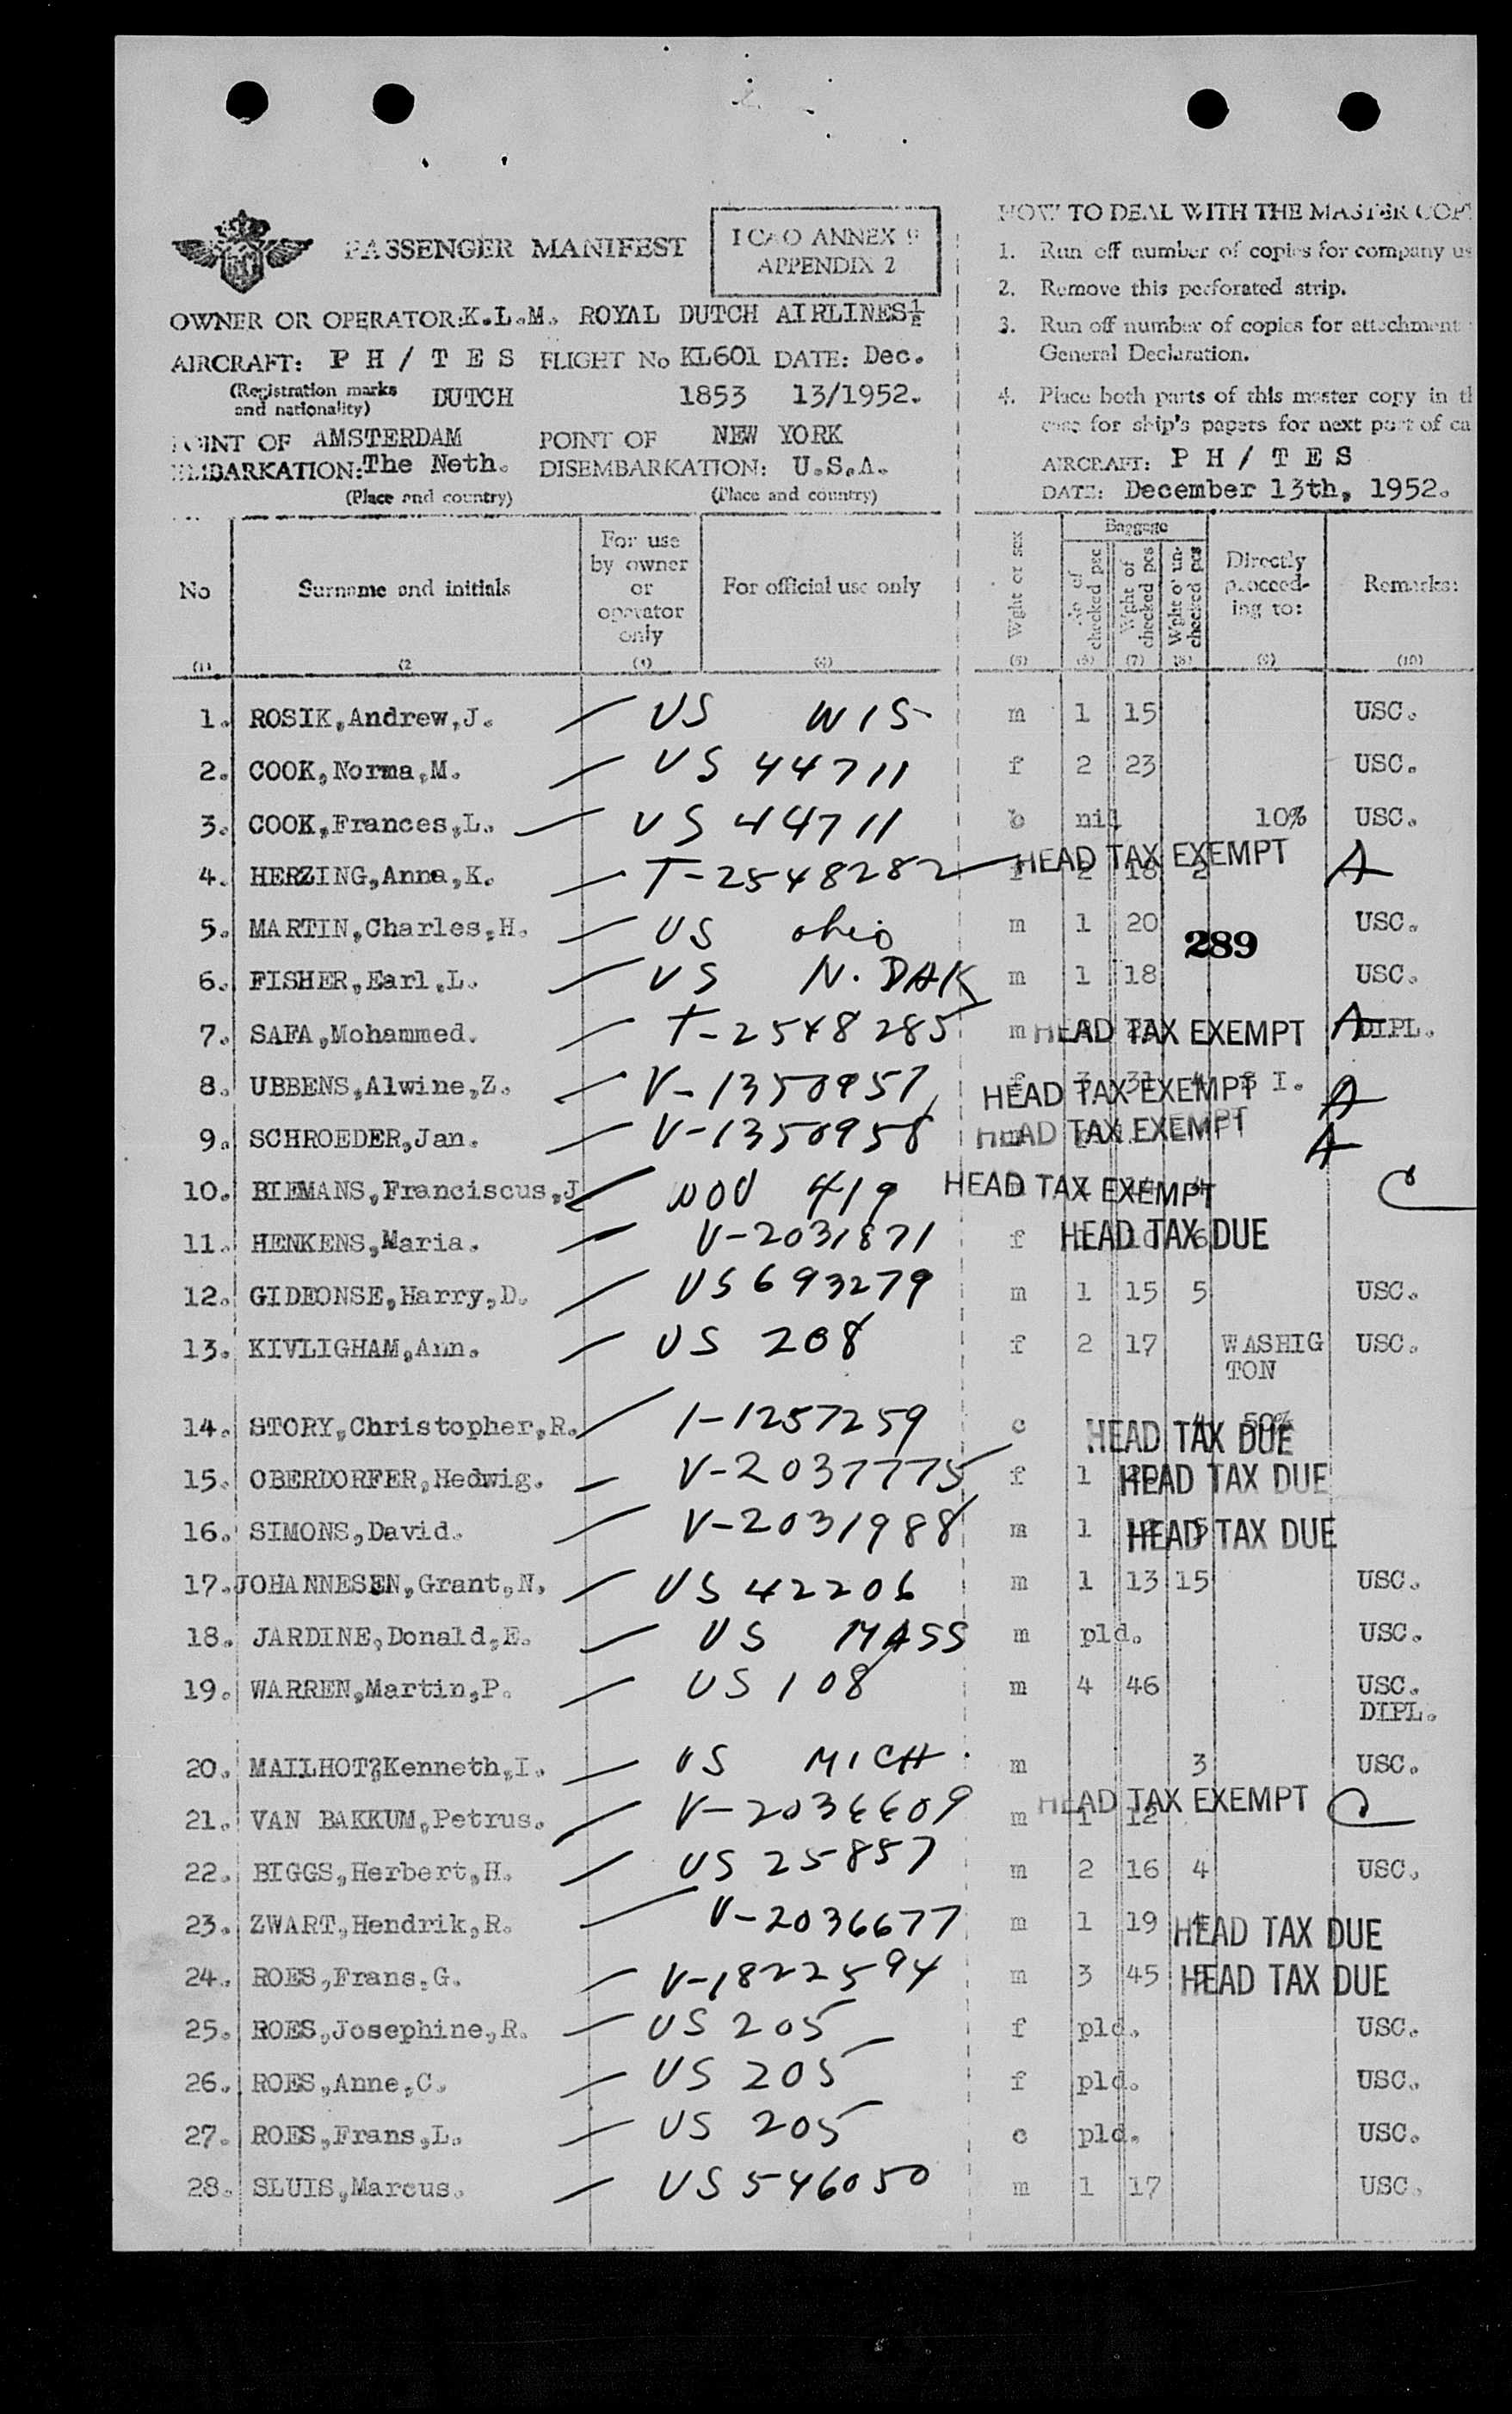 PASSENGER MANIFEST
ICAO ANNEX 9
APPENDIX 2
OWNER OR OPERATOR:K.L.M. ROYAL DUTCH AIRLINES½
AIRCRAFT: P H / T E S FLIGHT No KL601 DATE: Dec.
(Registration marks and nationality) DUTCH 1853 13/1952.
POINT OF EMBARKATION: AMSTERDAM The Neth. POINT OF DISEMBARKATION: NEW YORK U.S.A.
(Place and country) (Place and country)
HOW TO DEAL WITH THE MASTER COP
1. Run off number of copies for company us
2. Remove this perforated strip.
3. Run off number of copies for attachment
General Declaration.
4. Place both parts of this master copy in th
case for ship's papers for next part of ca
AIRCRAFT: P H / T E S
DATE: December 13th, 1952.
No Surname and initials For use by owner or operator only For official use only Wght or sex Baggage No of checked pec Wght of checked pcs Wght of un-checked pcs Directly proceed-ing to: Remarks:
(1) (2 (3) (4) (5) (6) (7) (8) (9) (10)
1. ROSIK,Andrew,J. US WIS- m 1 15 USC.
2. COOK,Norma,M. US 44711 f 2 23 USC.
3. COOK,Frances,L. US 44711 b nil 10% USC.
4. HERZING,Anna,K. T-2548282 f 2 18 2 HEAD TAX EXEMPT A
5. MARTIN,Charles,H. US ohio m 1 20 USC.
289
6. FISHER,Earl,L. US N. DAK m 1 18 USC.
7. SAFA,Mohammed. T-2548285 m HEAD TAX EXEMPT A DIPL.
8. UBBENS,Alwine,Z. V-1350957 f 3 31 4 S I. HEAD TAX EXEMPT A
9. SCHROEDER,Jan. V-1350958 m HEAD TAX EXEMPT A
10. BIEMANS,Franciscus,J NOV 419 HEAD TAX EXEMPT 4 C
11. HENKENS,Maria. V-2031871 f HEAD TAX DUE 6
12. GIDEONSE,Harry,D. US 693279 m 1 15 5 USC.
13. KIVLIGHAM,Ann. US 208 f 2 17 WASHIG TON USC.
14. STORY,Christopher,R. 1-1257259 c 4 50% HEAD TAX DUE
15. OBERDORFER,Hedwig. V-2037775 f 1 HEAD TAX DUE
16. SIMONS,David. V-2031988 m 1 5 HEAD TAX DUE
17.JOHANNESEN,Grant,N. US 42206 m 1 13 15 USC.
18. JARDINE,Donald,E. US MASS m pld. USC.
19. WARREN,Martin,P. US 108 m 4 46 USC. DIPL.
20. MAILHOT?Kenneth,I. US MICH. m 3 USC.
21. VAN BAKKUM,Petrus. V-2036609 m 1 12 HEAD TAX EXEMPT C
22. BIGGS,Herbert,H. US 25857 m 2 16 4 USC.
23. ZWART,Hendrik,R. V-2036677 m 1 19 HEAD TAX DUE
24. ROES,Frans,G. V-1822594 m 3 45 HEAD TAX DUE
25. ROES,Josephine,R. US 205 f pld. USC.
26. ROES,Anne,C. US 205 f pld. USC.
27. ROES,Frans,L. US 205 c pld. USC.
28. SLUIS,Marcus. US 546050 m 1 17 USC.